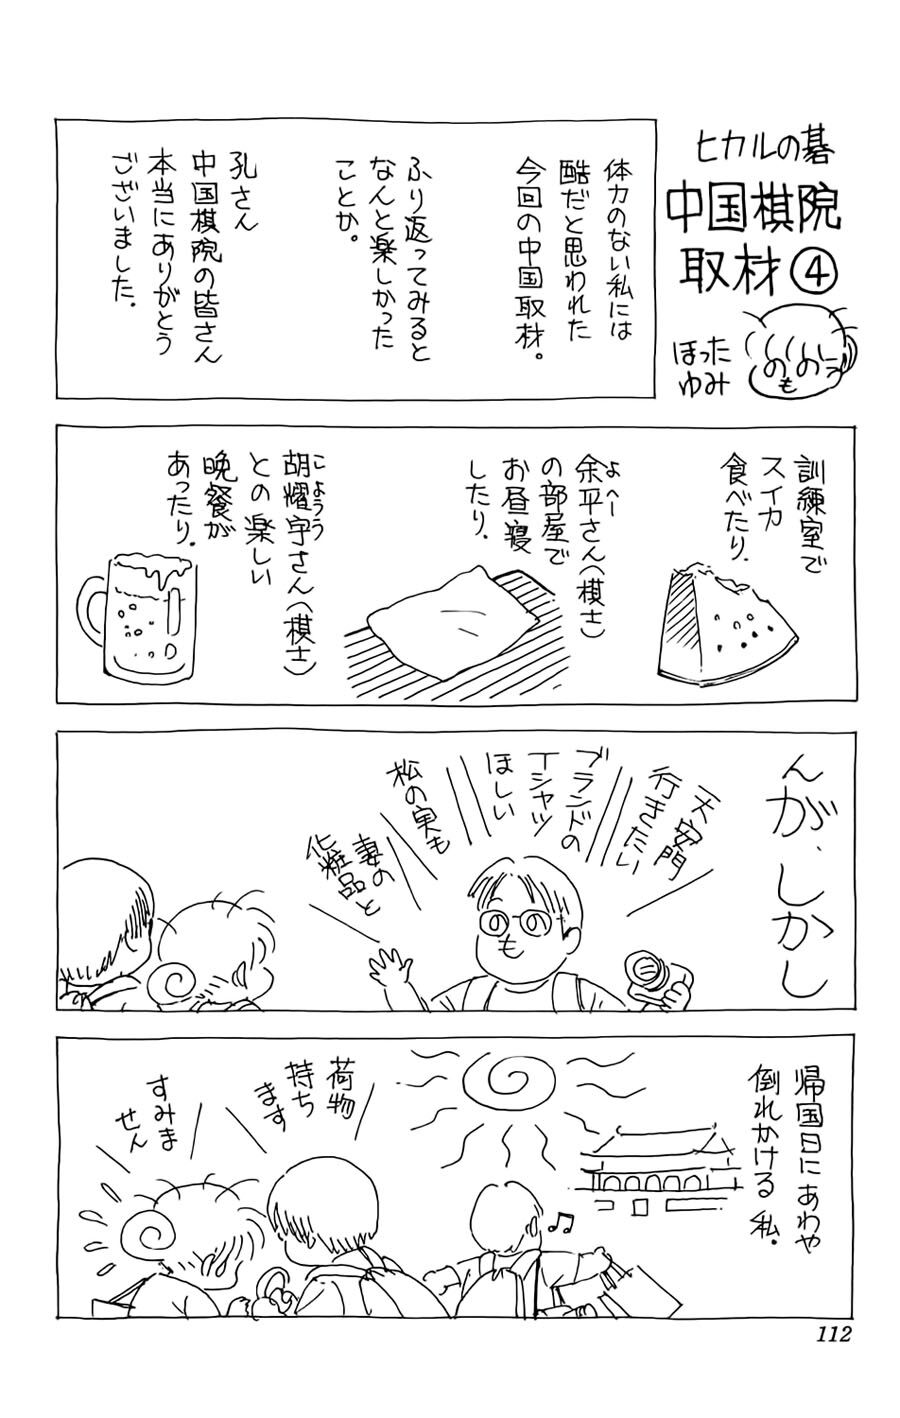 ヒカルの碁
中国棋院
取材④
ほった
ゆみ
体力のない私には
酷だと思われた
今回の中国取材。
ふり返ってみると
なんと楽しかった
ことか。
孔さん
中国棋院の皆さん
本当にありがとう
ございました.
訓練室で
スイカ
食べたり.
余平さん(棋士)
よへー
の部屋で
お昼寝
したり.
胡耀宇さん(棋士)
こようう
との楽しい
晩餐が
あったり.
んが、しかし
天安門
行きたい
ブランドの
Tシャツ
ほしい
松の実も
妻の
化粧品と
帰国日にあわや
倒れかける 私.
荷物
持ち
ます
すみま
せん
112